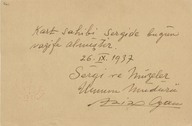 Kart sahibi Sergide bugün
vazife almıştır.
26.IX.1937
Sergi ve Müzeler
Umum Müdürü
Aziz Ogan